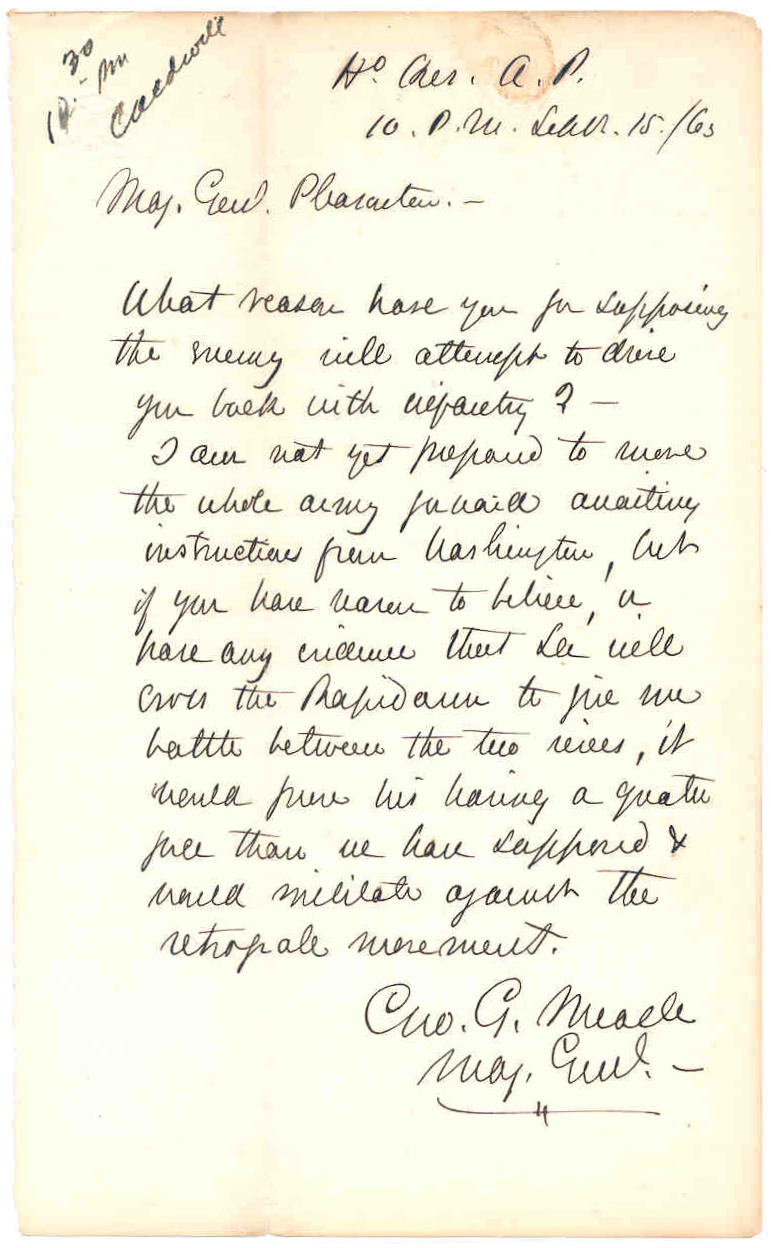 10 30 PM
Caldwell
Hd. Qrs. A. P.
10. P. M. Sept. 15. /63
Maj. Genl. Pleasonton. —
What reason have you for supposing
the enemy will attempt to drive
you back with infantry? —
I am not yet prepared to move
the whole army forward awaiting
instructions from Washington, but
if you have reason to believe, or
have any evidence that Lee will
cross the Rapidann to give me
battle between the two rivers, it
would prove his having a greater
force than we have supposed &
would militate against the
retrograde movement.
Geo. G. Meade
Maj. Genl. —